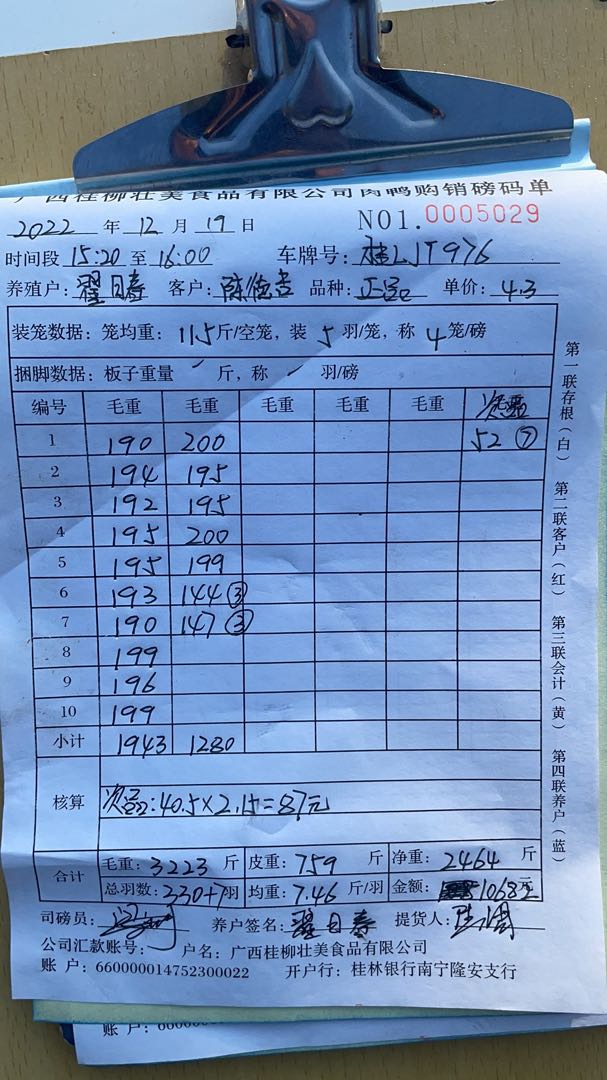 广西桂柳壮美食品有限公司肉鸭购销磅码单
2022 年 12 月 19 日 NO1.0005029
时间段 15:20 至 16:00 车牌号: 桂LJT976
养殖户: 翟日寿 客户: 陈俭吉 品种: 正品 单价: 4.3
装笼数据: 笼均重: 11.5 斤/空笼, 装 5 羽/笼, 称 4 笼/磅
捆脚数据: 板子重量 / 斤, 称 / 羽/磅
编号 毛重 毛重 毛重 毛重 毛重 次品
1 190 200 52 ⑦
2 194 195
3 192 195
4 195 200
5 195 199
6 193 144 ③
7 190 147 ③
8 199
9 196
10 199
小计 1943 1280
核算 次品:40.5×2.15=87元
合计 毛重: 3223 斤 皮重: 759 斤 净重: 2464 斤
总羽数: 330+7 羽 均重: 7.46 斤/羽 金额: 10682 元
司磅员: 养户签名: 翟日寿 提货人:
公司汇款账号: 户名: 广西桂柳壮美食品有限公司
账 户: 660000014752300022 开户行: 桂林银行南宁隆安支行
第一联存根(白) 第二联客户(红) 第三联会计(黄) 第四联养户(蓝)
账 户: